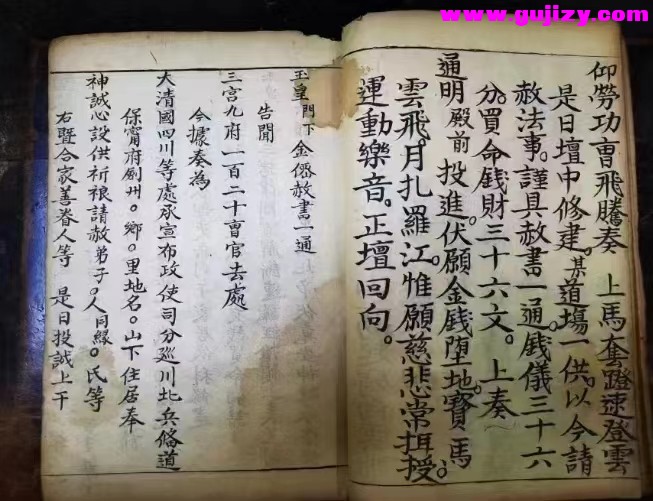 www.gujizy.com
仰勞功曹飛騰奏 上馬奎蹬速登雲
是日壇中修建。某道場一供。以今請
赦法事。謹具赦書一通。戲儀三十六
分。買命戲財三十六文。上奏
通明殿前 投進。伏願金戲堕地。寶馬
雲飛。月扎羅江。惟願慈悲常揖授。
運動樂音。正壇回向。
玉皇門下金僊赦書一通
告聞
三宫九府一百二十曹官去處
今據奏為
大清國四川等處承宣布政使司分廵川北兵俻道
保甯府劍州。鄉。里地名。山下住居奉
神誠心設供祈禳請赦弟子。人同縁。氏等
右暨合家善眷人等 是日投誠上干